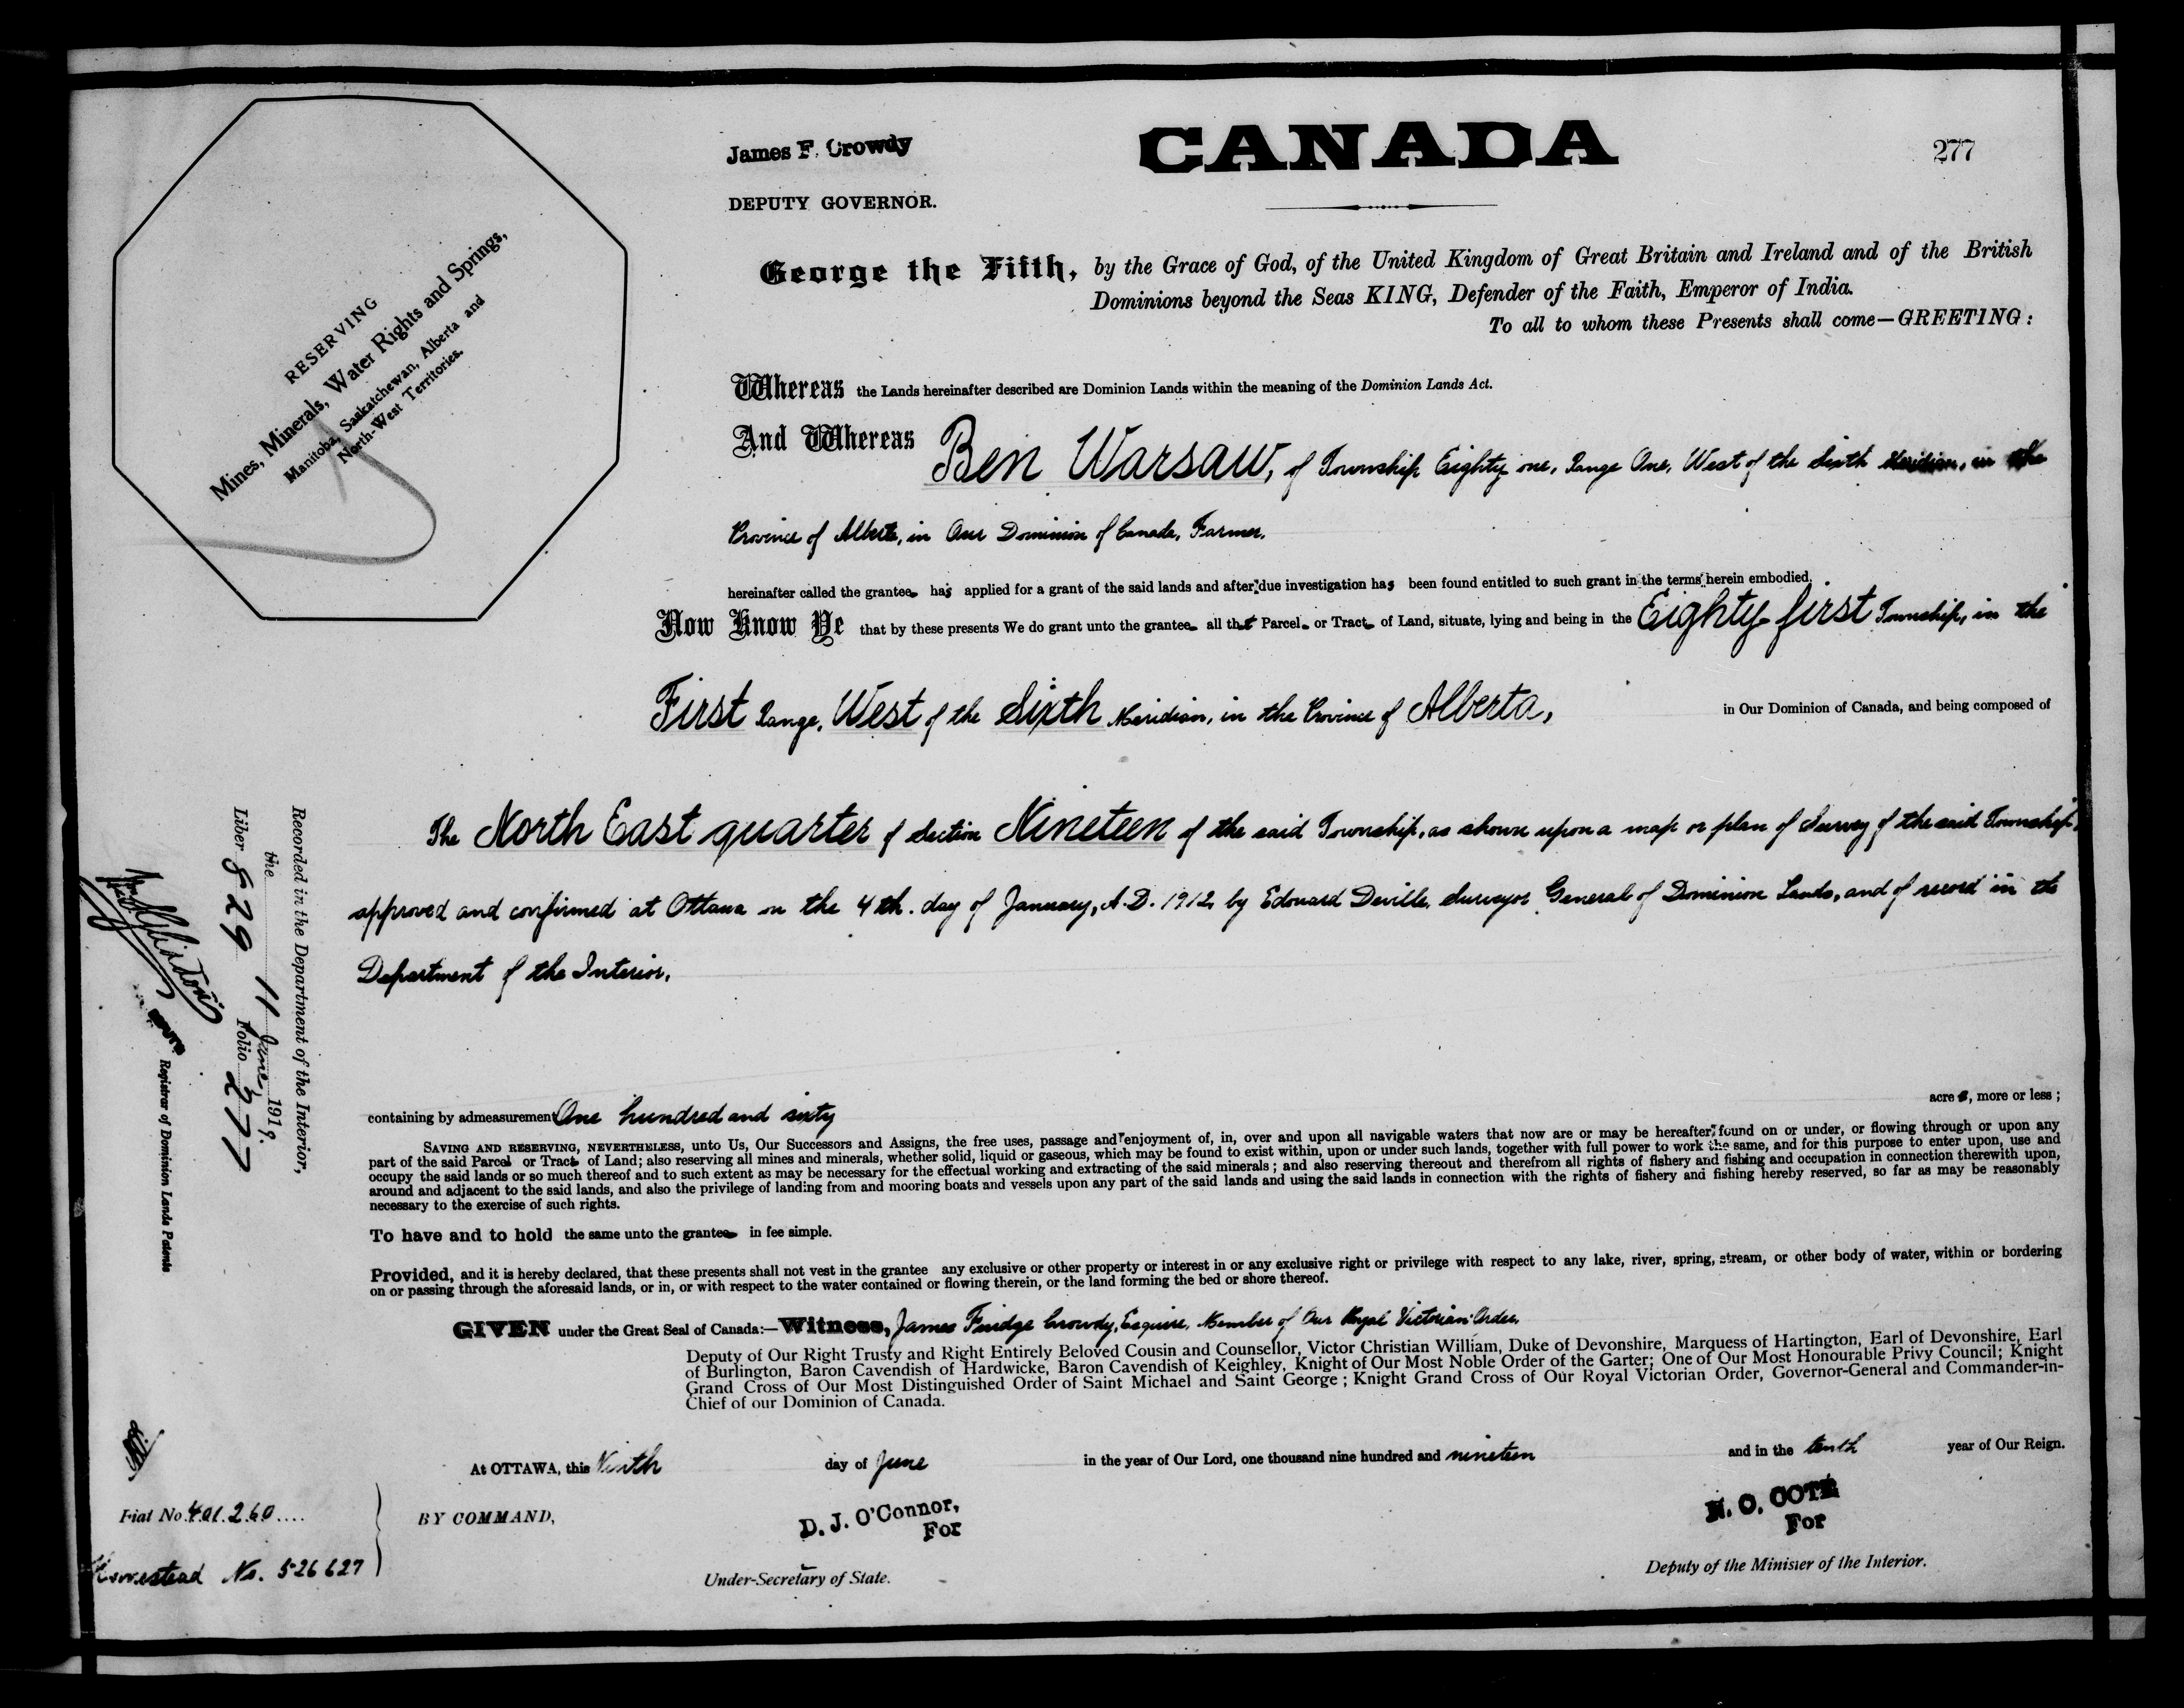 James F. Crowdy
DEPUTY GOVERNOR.
CANADA
277
RESERVING
Mines, Minerals, Water Rights and Springs,
Manitoba, Saskatchewan, Alberta and
North-West Territories.
George the Fifth, by the Grace of God, of the United Kingdom of Great Britain and Ireland and of the British
Dominions beyond the Seas KING, Defender of the Faith, Emperor of India.
To all to whom these Presents shall come—GREETING:
Whereas the Lands hereinafter described are Dominion Lands within the meaning of the Dominion Lands Act.
And Whereas Ben Warsaw, of Township Eighty one, Range One, West of the Sixth Meridian, in the
Province of Alberta, in Our Dominion of Canada, Farmer,
hereinafter called the grantee has applied for a grant of the said lands and after due investigation has been found entitled to such grant in the terms herein embodied.
Now Know Ye that by these presents We do grant unto the grantee all that Parcel or Tract of Land, situate, lying and being in the Eighty-first Township, in the
First Range, West of the Sixth Meridian, in the Province of Alberta, in Our Dominion of Canada, and being composed of
The North East quarter of Section Nineteen of the said Township, as shown upon a map or plan of Survey of the said Township,
approved and confirmed at Ottawa on the 4th. day of January, A.D. 1912, by Edouard Deville, Surveyor General of Dominion Lands, and of record in the
Department of the Interior,
containing by admeasurement One hundred and sixty acres, more or less;
SAVING AND RESERVING, NEVERTHELESS, unto Us, Our Successors and Assigns, the free uses, passage and enjoyment of, in, over and upon all navigable waters that now are or may be hereafter found on or under, or flowing through or upon any
part of the said Parcel or Tract of Land; also reserving all mines and minerals, whether solid, liquid or gaseous, which may be found to exist within, upon or under such lands, together with full power to work the same, and for this purpose to enter upon, use and
occupy the said lands or so much thereof and to such extent as may be necessary for the effectual working and extracting of the said minerals; and also reserving thereout and therefrom all rights of fishery and fishing and occupation in connection therewith upon,
around and adjacent to the said lands, and also the privilege of landing from and mooring boats and vessels upon any part of the said lands and using the said lands in connection with the rights of fishery and fishing hereby reserved, so far as may be reasonably
necessary to the exercise of such rights.
To have and to hold the same unto the grantee in fee simple.
Provided, and it is hereby declared, that these presents shall not vest in the grantee any exclusive or other property or interest in or any exclusive right or privilege with respect to any lake, river, spring, stream, or other body of water, within or bordering
on or passing through the aforesaid lands, or in, or with respect to the water contained or flowing therein, or the land forming the bed or shore thereof.
GIVEN under the Great Seal of Canada:—Witness, James Fuidge Crowdy, Esquire, Member of Our Royal Victorian Order,
Deputy of Our Right Trusty and Right Entirely Beloved Cousin and Counsellor, Victor Christian William, Duke of Devonshire, Marquess of Hartington, Earl of Devonshire, Earl
of Burlington, Baron Cavendish of Hardwicke, Baron Cavendish of Keighley, Knight of Our Most Noble Order of the Garter; One of Our Most Honourable Privy Council; Knight
Grand Cross of Our Most Distinguished Order of Saint Michael and Saint George; Knight Grand Cross of Our Royal Victorian Order, Governor-General and Commander-in-
Chief of our Dominion of Canada.
At OTTAWA, this Ninth day of June in the year of Our Lord, one thousand nine hundred and nineteen and in the tenth year of Our Reign.
BY COMMAND,
D. J. O'Connor,
For
Under-Secretary of State.
N. O. COTÉ
For
Deputy of the Minister of the Interior.
Recorded in the Department of the Interior,
the 11 June, 1919.
Liber 829 Folio 277
Registrar of Dominion Lands Patents
Fiat No. 401260....
Homestead No. 526627